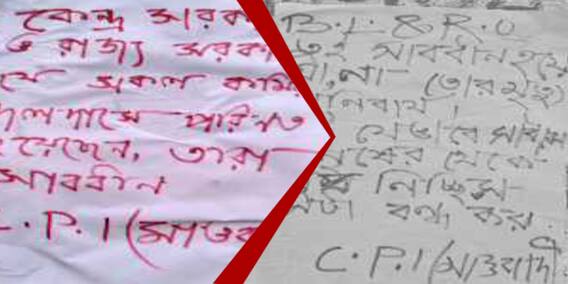 কেন্দ্র সরকা
ও রাজ্য সরকা
যে সকল কর্মি
দলদাসে পরিনত
হয়েছেন, তারা
সাবধান
C.P.I (মাওব
B.L. & R.O
সাবধান হয়ে
না, না- (তোর মৃত্যু
নিবার্য।
যেভাবে সাধার
থেকে
নিচ্ছিস
বন্ধ কর।
C.P.I (মাওবাদী